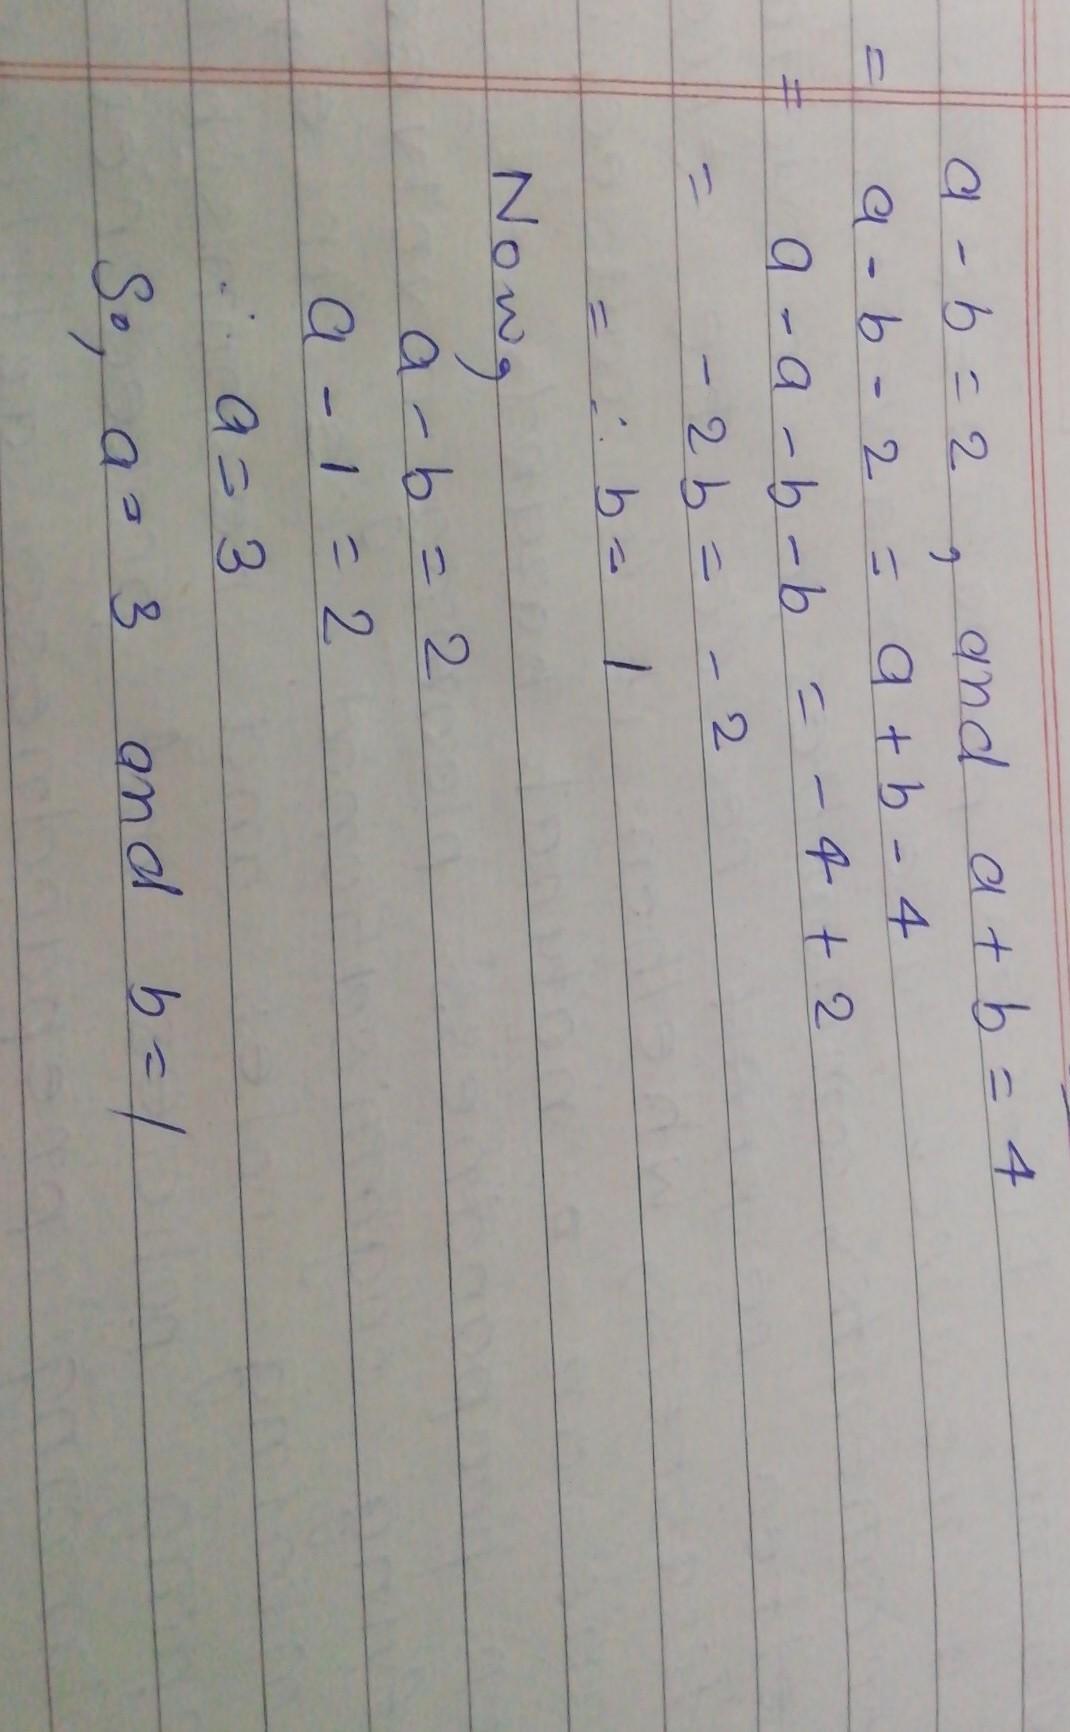 a - b = 2 , and a + b = 4
= a - b - 2 = a + b - 4
= a - a - b - b = - 4 + 2
= - 2b = - 2
= ∴ b = 1
Now,
a - b = 2
a - 1 = 2
∴ a = 3
So, a = 3 and b = 1